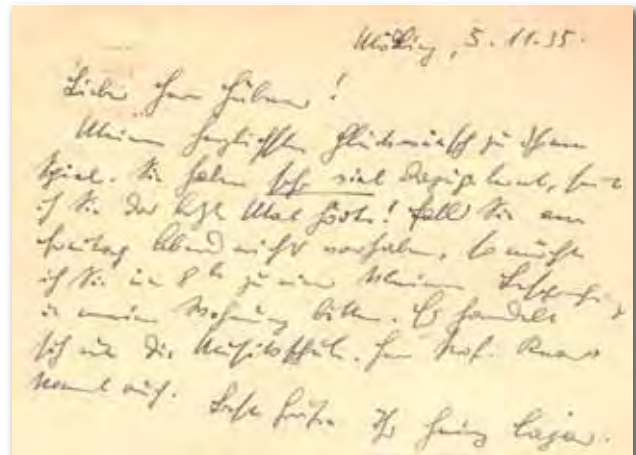 Mödling, 5.11.35.
Lieber Herr Hübner!
Meinen herzlichsten Glückwunsch zu Ihrem
Spiel. Sie haben sehr viel dazugelernt, seit
ich Sie das letzte Mal hörte! Falls Sie am
Freitag Abend nichts vorhaben, so möchte
ich Sie um 8h zu einer kleinen Besprechung
in meine Wohnung bitten. Es handelt
sich um die Musikschule. Herr Prof.
kommt auch. Beste Grüße Ihr Heinz